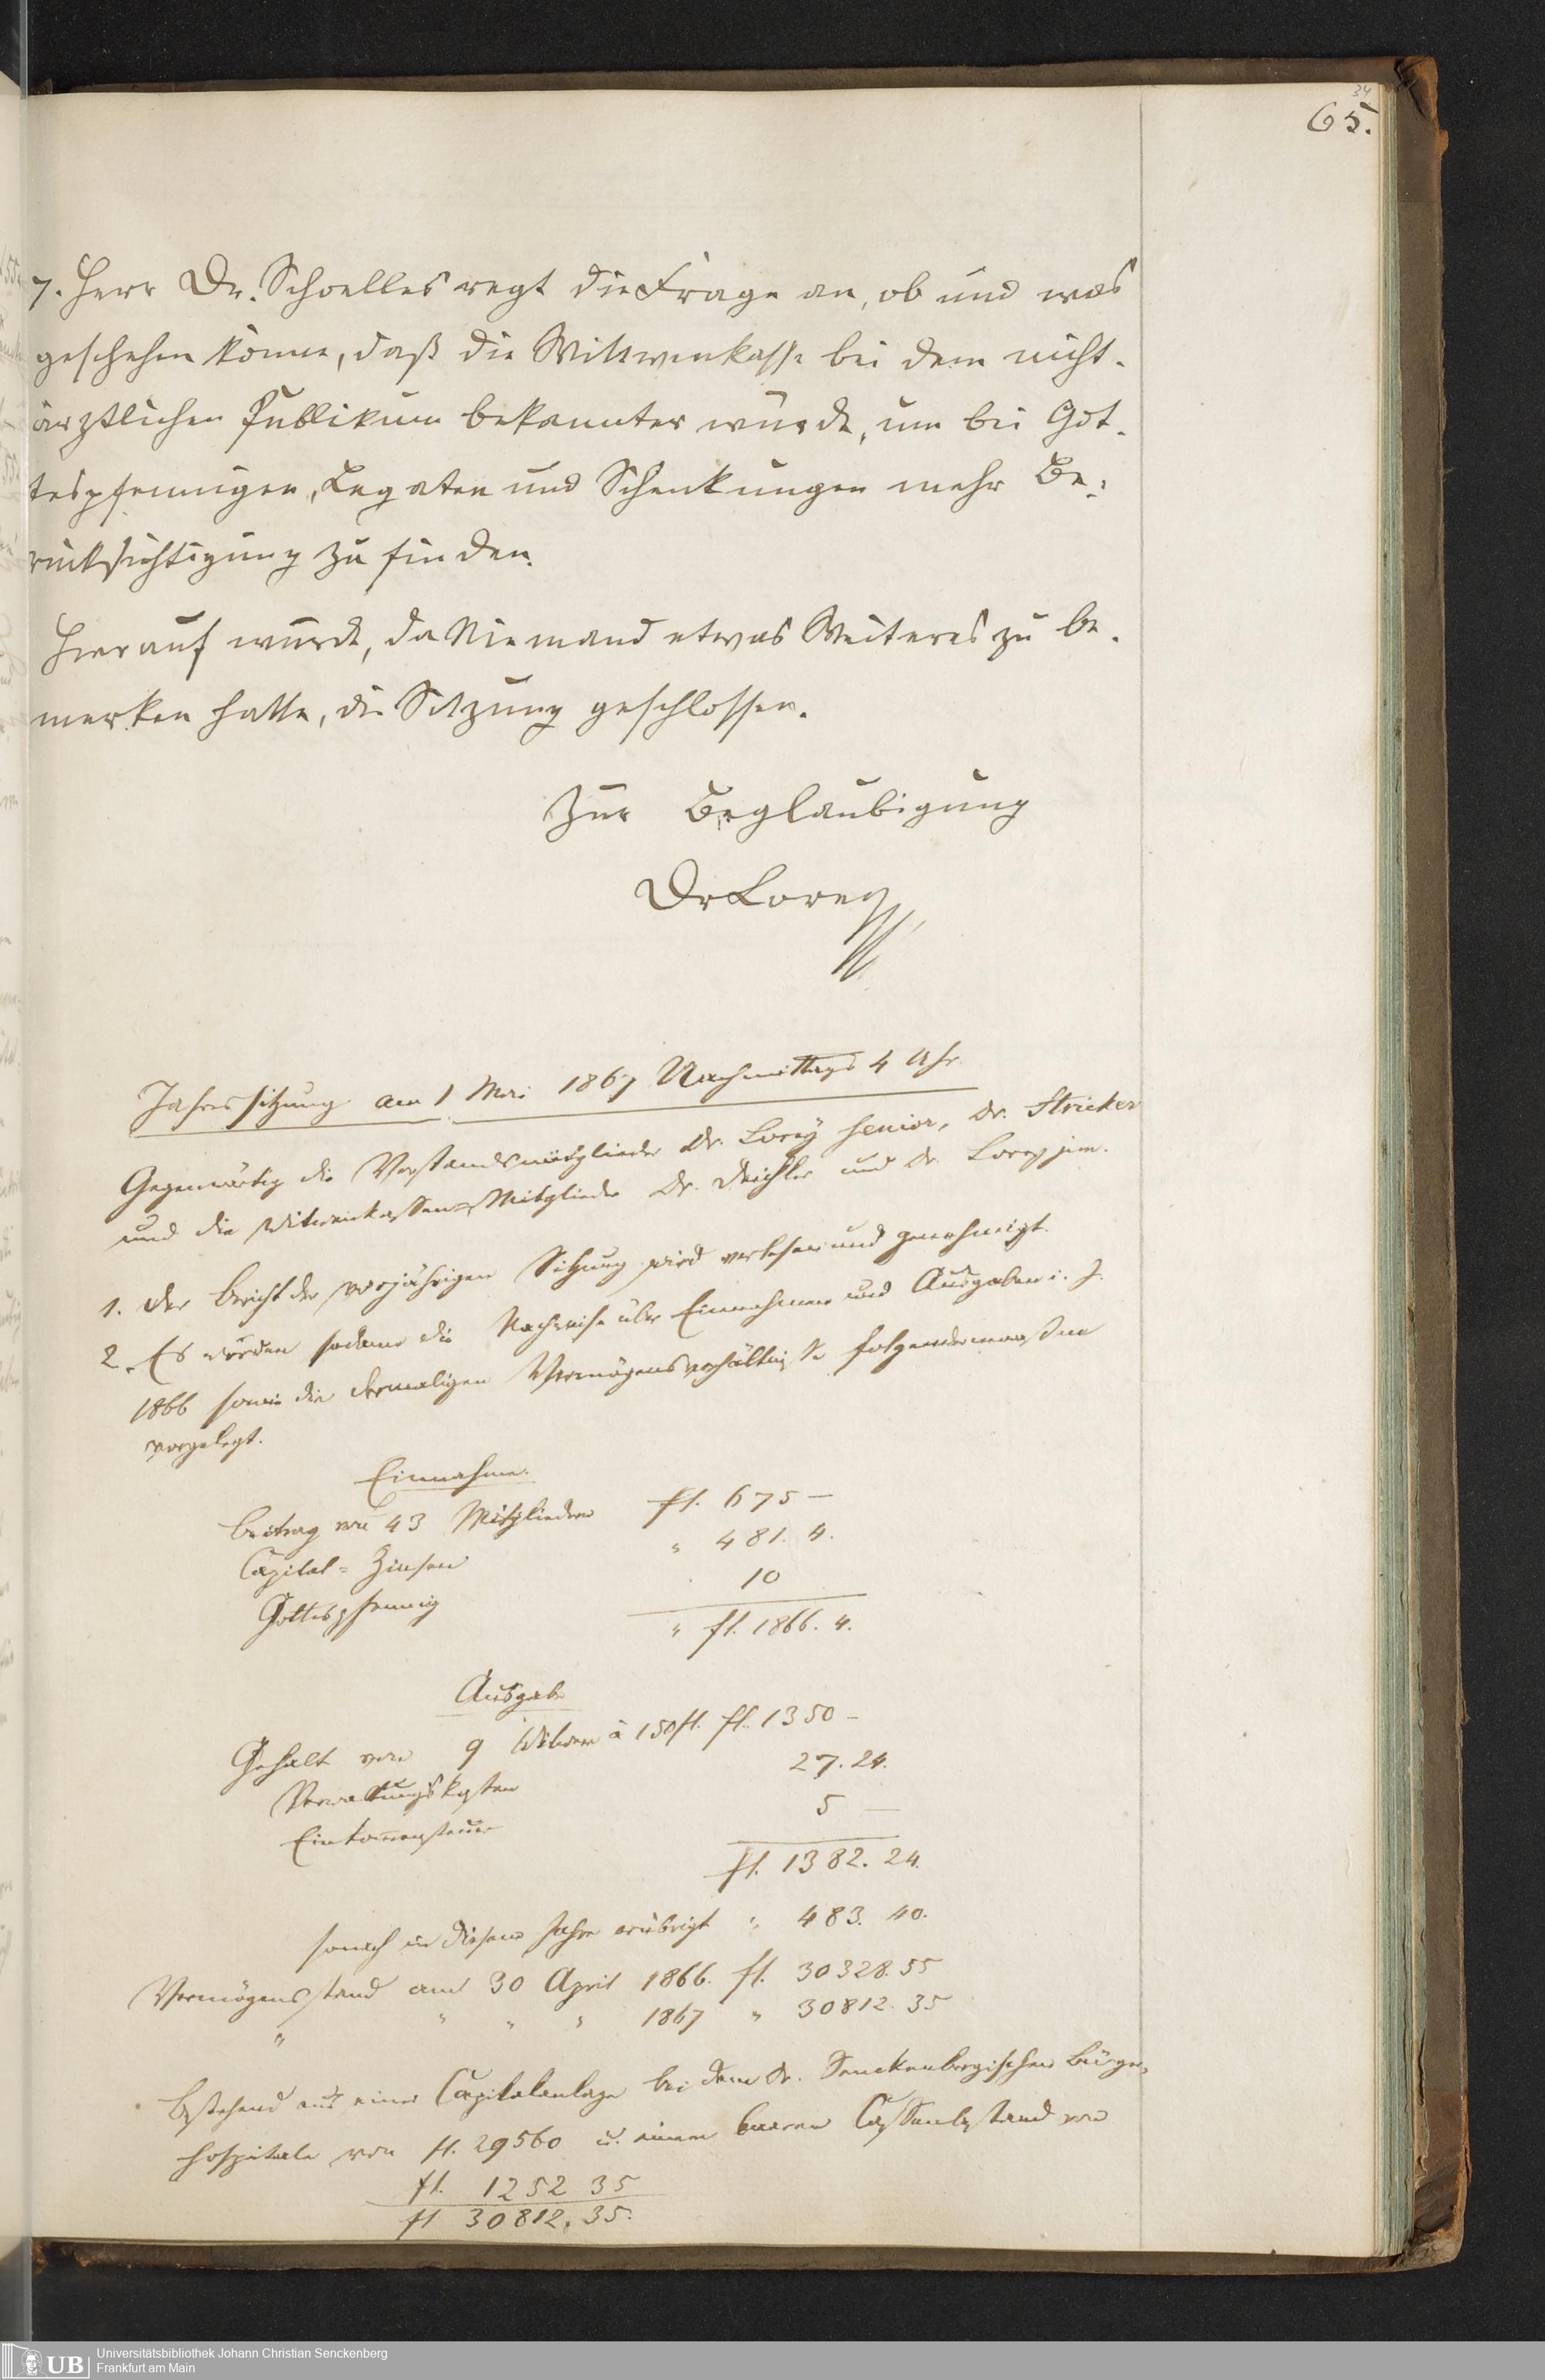 34
65.
7. Herr Dr. Schoelles regt die Frage an, ob und was
geschehen könne, daß die Wittwenkasse bei dem nicht-
ärztlichen Publikum bekannter würde, um bei Got-
tespfennigen, Legaten und Schenkungen mehr Be-
rücksichtigung zu finden.
Hierauf wurde, da Niemand etwas Weiteres zu be-
merken hatte, die Sitzung geschlossen.
Zur Beglaubigung
Dr Lorey
Jahressitzung am 1 Mai 1867 Nachmittags 4 Uhr.
Gegenwärtig die Vorstandsmitglieder Dr. Lorey senior, Dr. Stricker
und die Witwenkassen-Mitglieder Dr. Deichler und Dr. Lorey jun.
1. Der Bericht der vorjährigen Sitzung wird verlesen und genehmigt.
2. Es würden sodann die Nachweise über Einnahmen und Ausgaben i. J.
1866 sowie die dermaligen Vermögensverhältnisse folgendermaassen
vorgelegt.
Einnahme.
Beitrag von 43 Mitgliedern fl. 675 —
Capital-Zinsen " 481. 4.
Gottespfennig 10
" fl. 1866. 4.
Ausgabe
Gehalt von 9 Witwen à 150 fl. fl. 1350 —
Verwaltungskosten 27. 24.
Einkommensteuer 5 —
fl. 1382. 24.
sonach in diesem Jahre erübrigt " 483. 40.
Vermögensstand am 30 April 1866. fl. 30328. 55
" " " " 1867 " 30812. 35
bestehend aus einer Capitalanlage bei dem Dr. Senckenbergischen Bürger-
hospitale von fl. 29560 u. einem baaren Cassenbestand von
fl. 1252 35
fl 30812. 35.
UB
Universitätsbibliothek Johann Christian Senckenberg
Frankfurt am Main